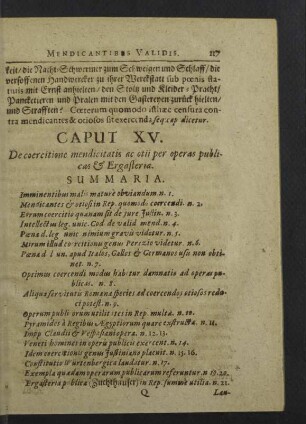 MENDICANTIBUS VALIDIS. 117
keit/ die Nacht-Schwermer zum Schweigen und Schlaff/ die
versoffenen Handwercker zu ihrer Werckstatt sub pœnis sta-
tuis mit Ernst anhielten/ den Stoltz und Kleider-Pracht/
Pancketieren und Pralen mit den Gastereyen zurück hielten/
und Strafften? Cœterum quomodo censura con-
tra mendicantes & otiosos sit exercenda, seq. cap. dicetur.
CAPUT XV.
De coercitione mendicitatis ac otii per operas publi-
cas & Ergasteria.
SUMMARIA.
Imminentibus malis maturè obviandum n. 1.
Mendicantes & otiosi in Rep. quomodo coercendi. n. 2.
Et rum coercitio quanam sit de jure Justin. n. 3.
Intellectus leg. unic. Cod. de valid mend. n. 4.
Pœna d. leg. unic. nimium gravis videtur. n. 5.
Mirum illud coercitionis genus Perszio videtur. n. 6.
Pœna d. l. un. apud Italos, Gallos & Germanos usu non obti-
net. n. 7.
Optimus coercendi modus habetur damnatio ad operas pu-
blicas. n. 8.
Aliqua servientis Romana species ad coercendos otiosos redu-
ci potest. n. 9.
Operum publicorum utilitates in Rep. multæ. n. 10.
Pyramides à Regibus Ægyptiorum quare exstructæ. n. 11.
Impp. Claudii & Vespasiani opera. n. 12. 13.
Veneti homines in operis publicis exercent. n. 14.
Idem coercitionis genus Justiniano placuit. n. 15. 16.
Constitutio Würtenbergica laudatur. n. 17.
Exempla quædam operarum publicarum referuntur. n. 19. 20.
Ergasteria publica (Zuchthäuser) in Rep. summè utilia. n. 21.
Q Lau-